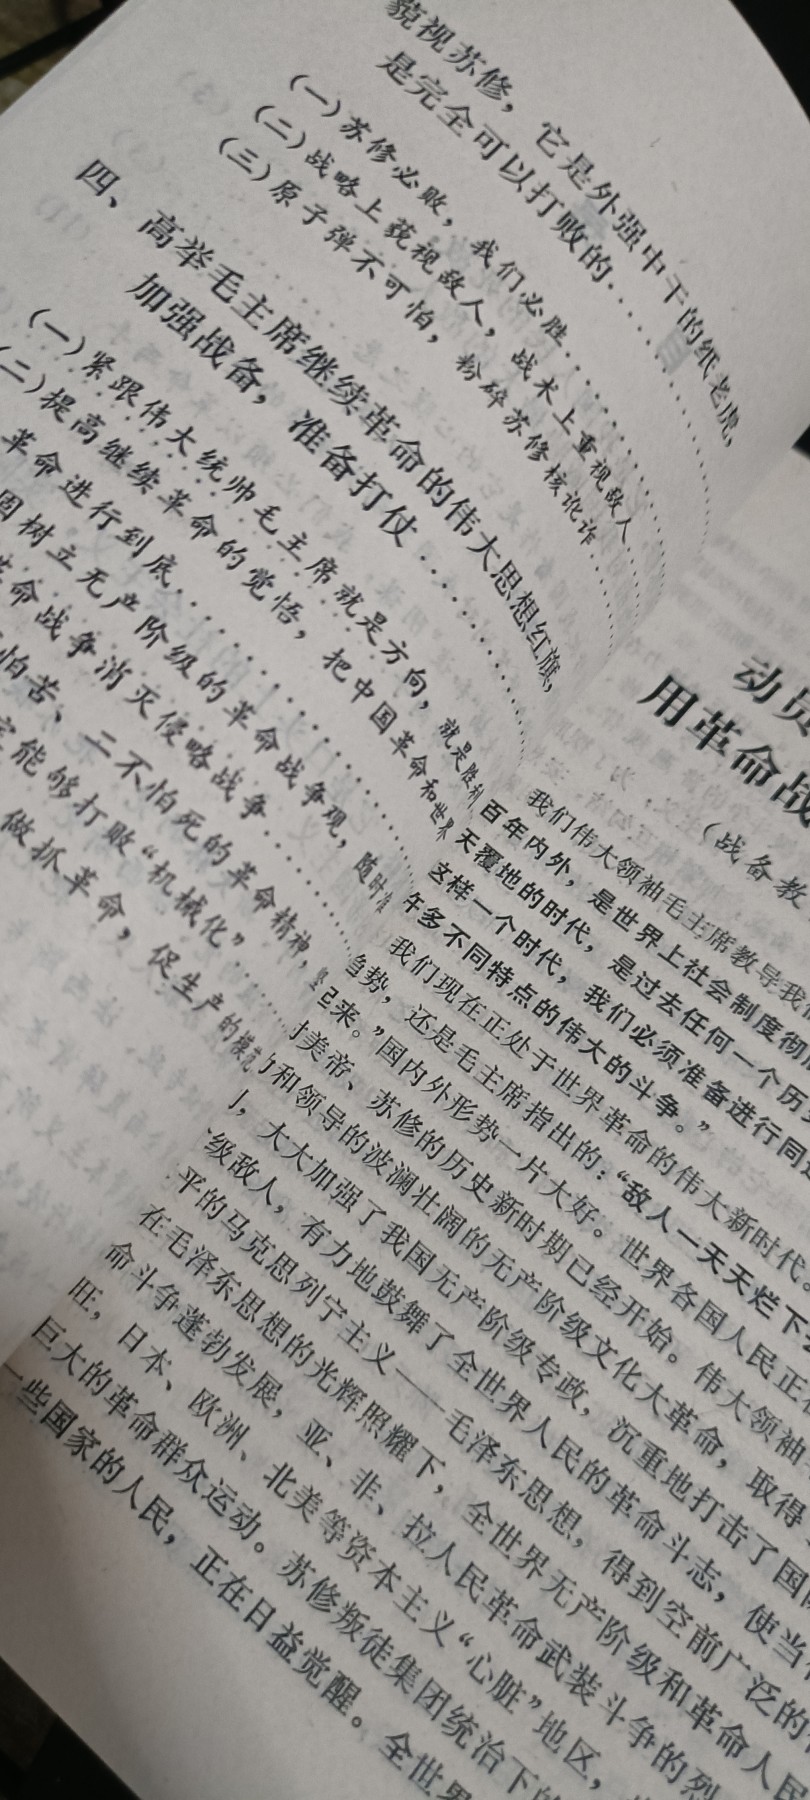 藐视苏修，它是外强中干的纸老虎，
是完全可以打败的……
(一)苏修必败，我们必胜……
(二)战略上藐视敌人，战术上重视敌人
(三)原子弹不可怕，粉碎苏修核讹诈……
四、高举毛主席继续革命的伟大思想红旗，
加强战备，准备打仗……
(一)紧跟伟大统帅毛主席就是方向，就是胜利
(二)提高继续革命的觉悟，把中国革命和世界
革命进行到底……
树立无产阶级的革命战争观，随时准
革命战争消灭侵略战争……
怕苦、二不怕死的革命精神，
能够打败“机械化”……
做抓革命，促生产的模范
动员
用革命战
(战备教
我们伟大领袖毛主席教导我们
百年内外，是世界上社会制度彻底
天覆地的时代，是过去任何一个历史
这样一个时代，我们必须准备进行同过
许多不同特点的伟大的斗争。”
我们现在正处于世界革命的伟大新时代。
趋势，还是毛主席指出的：“敌人一天天烂下去
起来。”国内外形势一片大好。世界各国人民正在
美帝、苏修的历史新时期已经开始。伟大领袖
和领导的波澜壮阔的无产阶级文化大革命，取得
，大大加强了我国无产阶级专政，沉重地打击了国际
级敌人，有力地鼓舞了全世界人民的革命斗志，使当
平的马克思列宁主义——毛泽东思想，得到空前广泛的
在毛泽东思想的光辉照耀下，全世界无产阶级和革命人民
命斗争蓬勃发展，亚、非、拉人民革命武装斗争的烈
旺，日本、欧洲、北美等资本主义“心脏”地区，
巨大的革命群众运动。苏修叛徒集团统治下的
一些国家的人民，正在日益觉醒。全世界